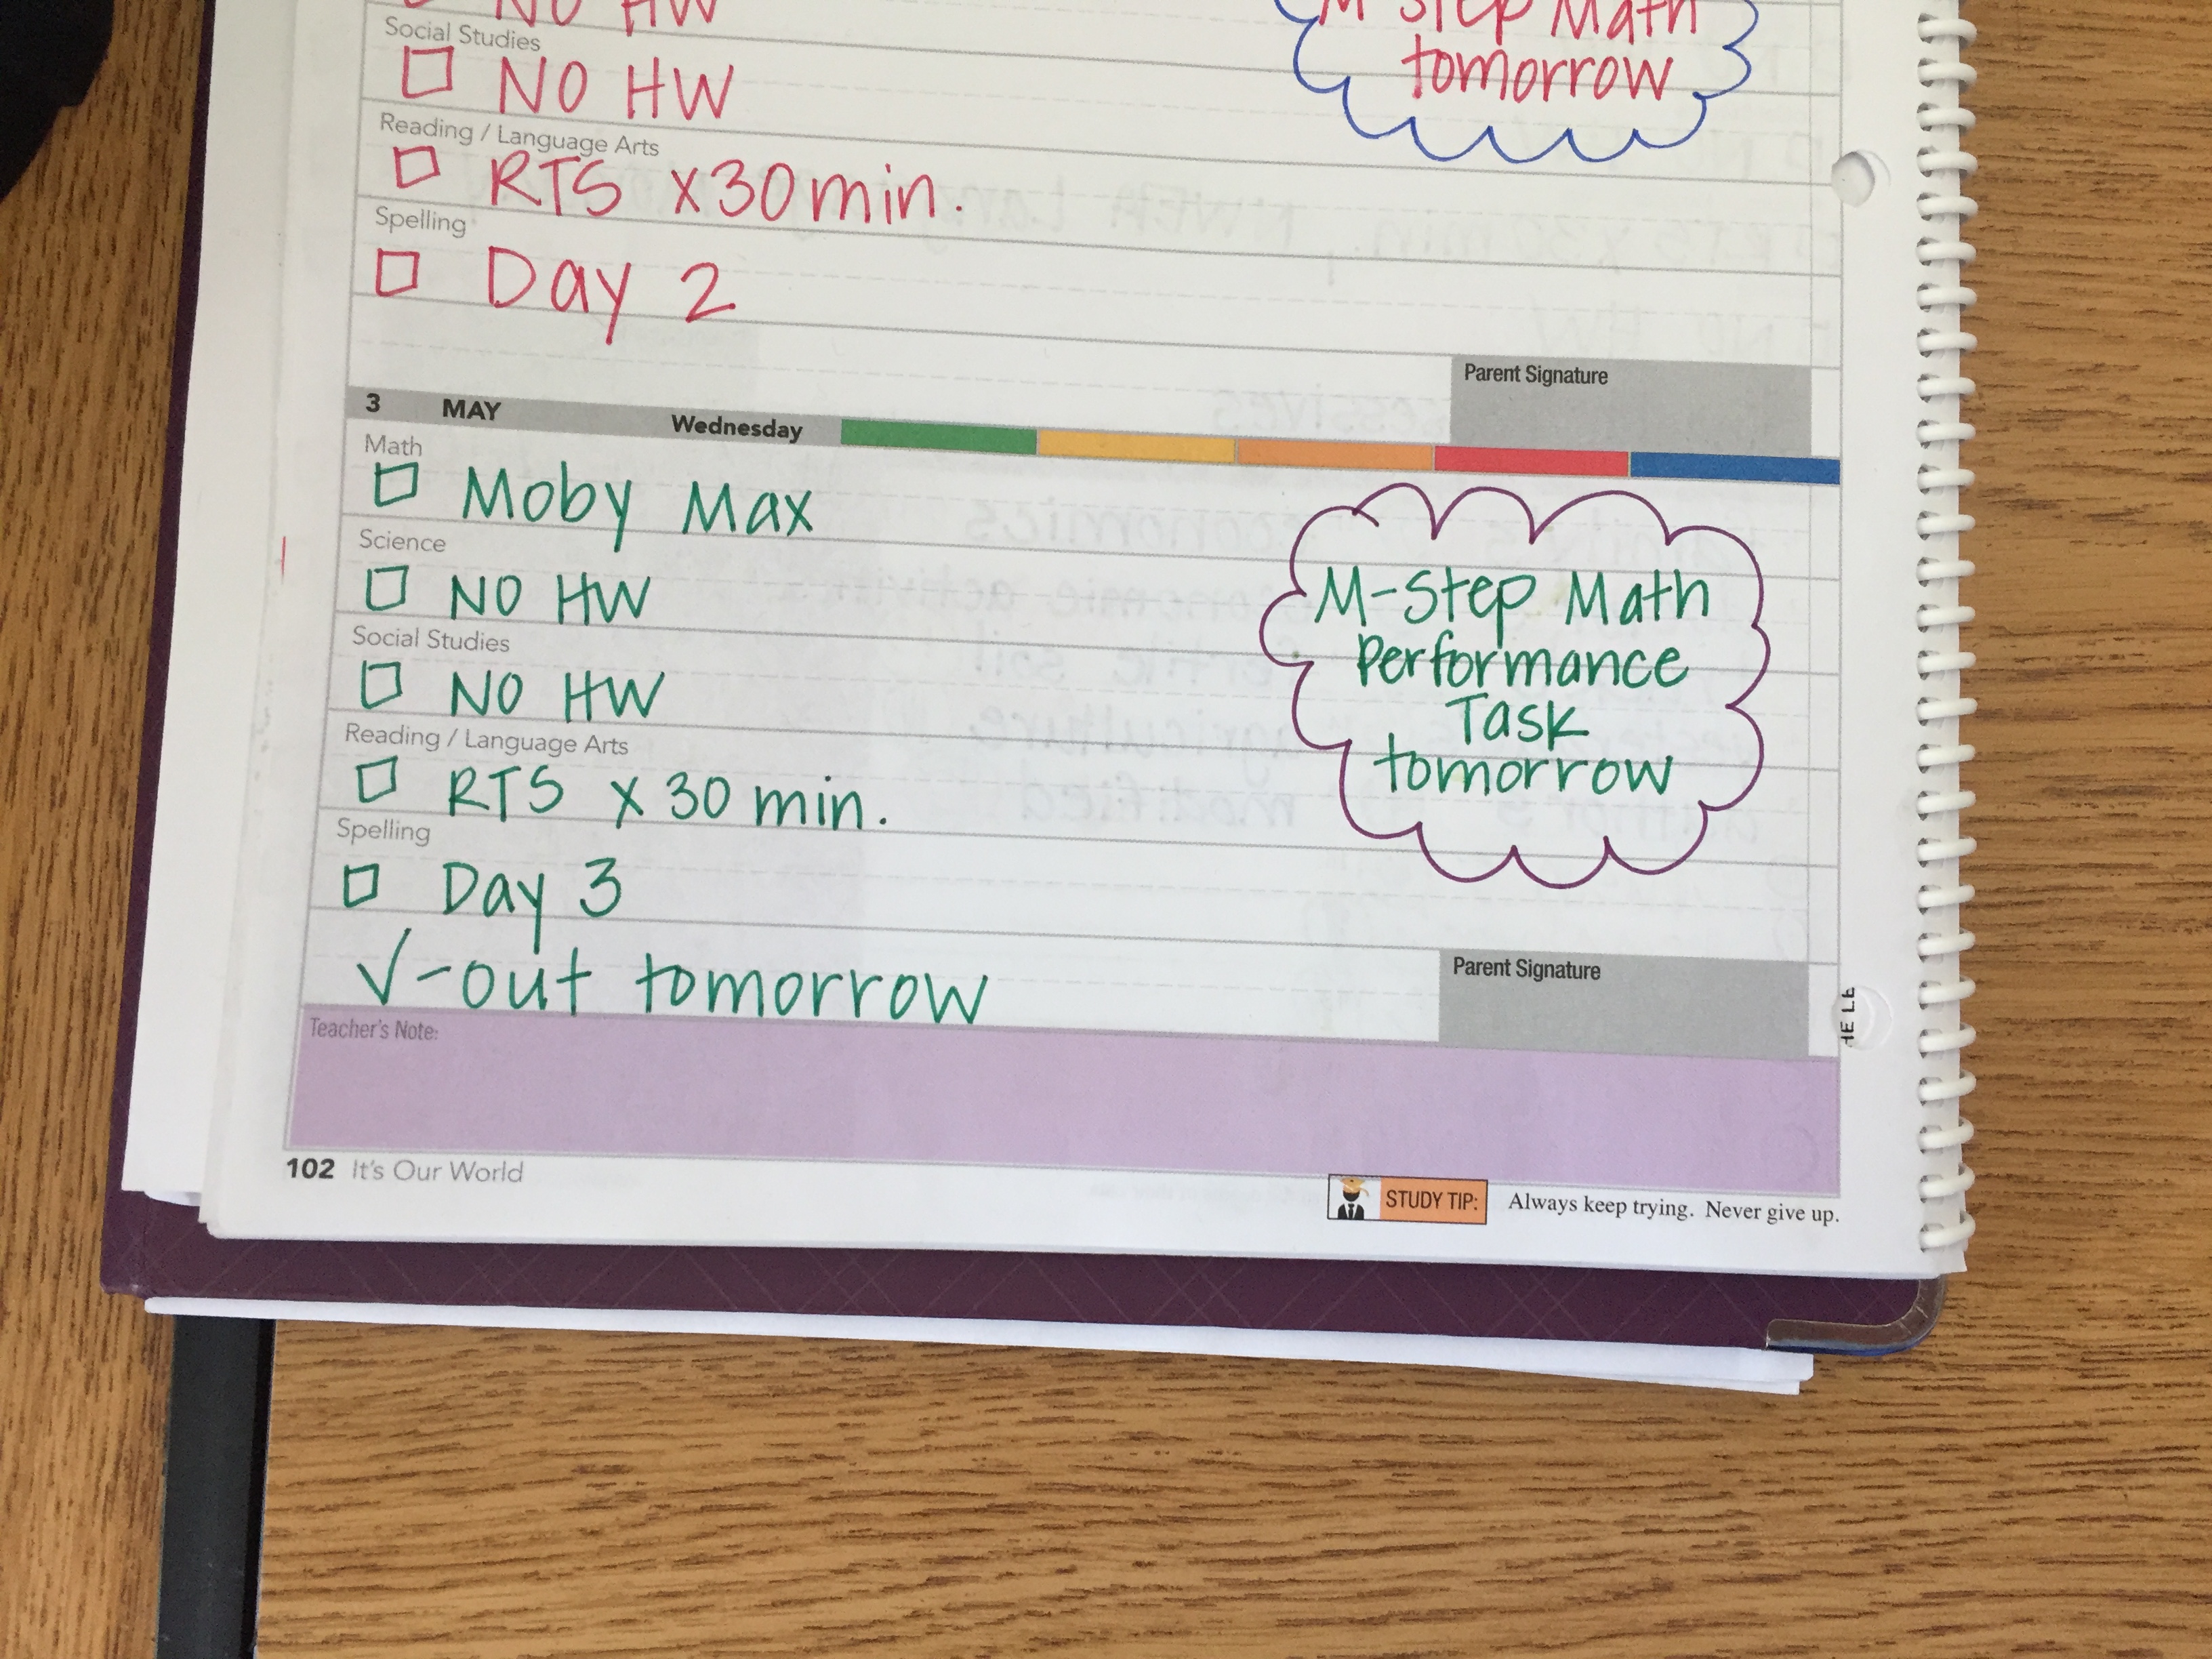 NO HW
M-Step Math
Social Studies
NO HW
tomorrow
Reading / Language Arts
RTS x30min.
Spelling
Day 2
Parent Signature
3 MAY Wednesday
Math
Moby Max
Science
NO HW
Social Studies
NO HW
Reading / Language Arts
RTS x 30 min.
Spelling
Day 3
√-out tomorrow
M-Step Math
Performance
Task
tomorrow
Parent Signature
Teacher's Note:
102 It's Our World
STUDY TIP: Always keep trying. Never give up.